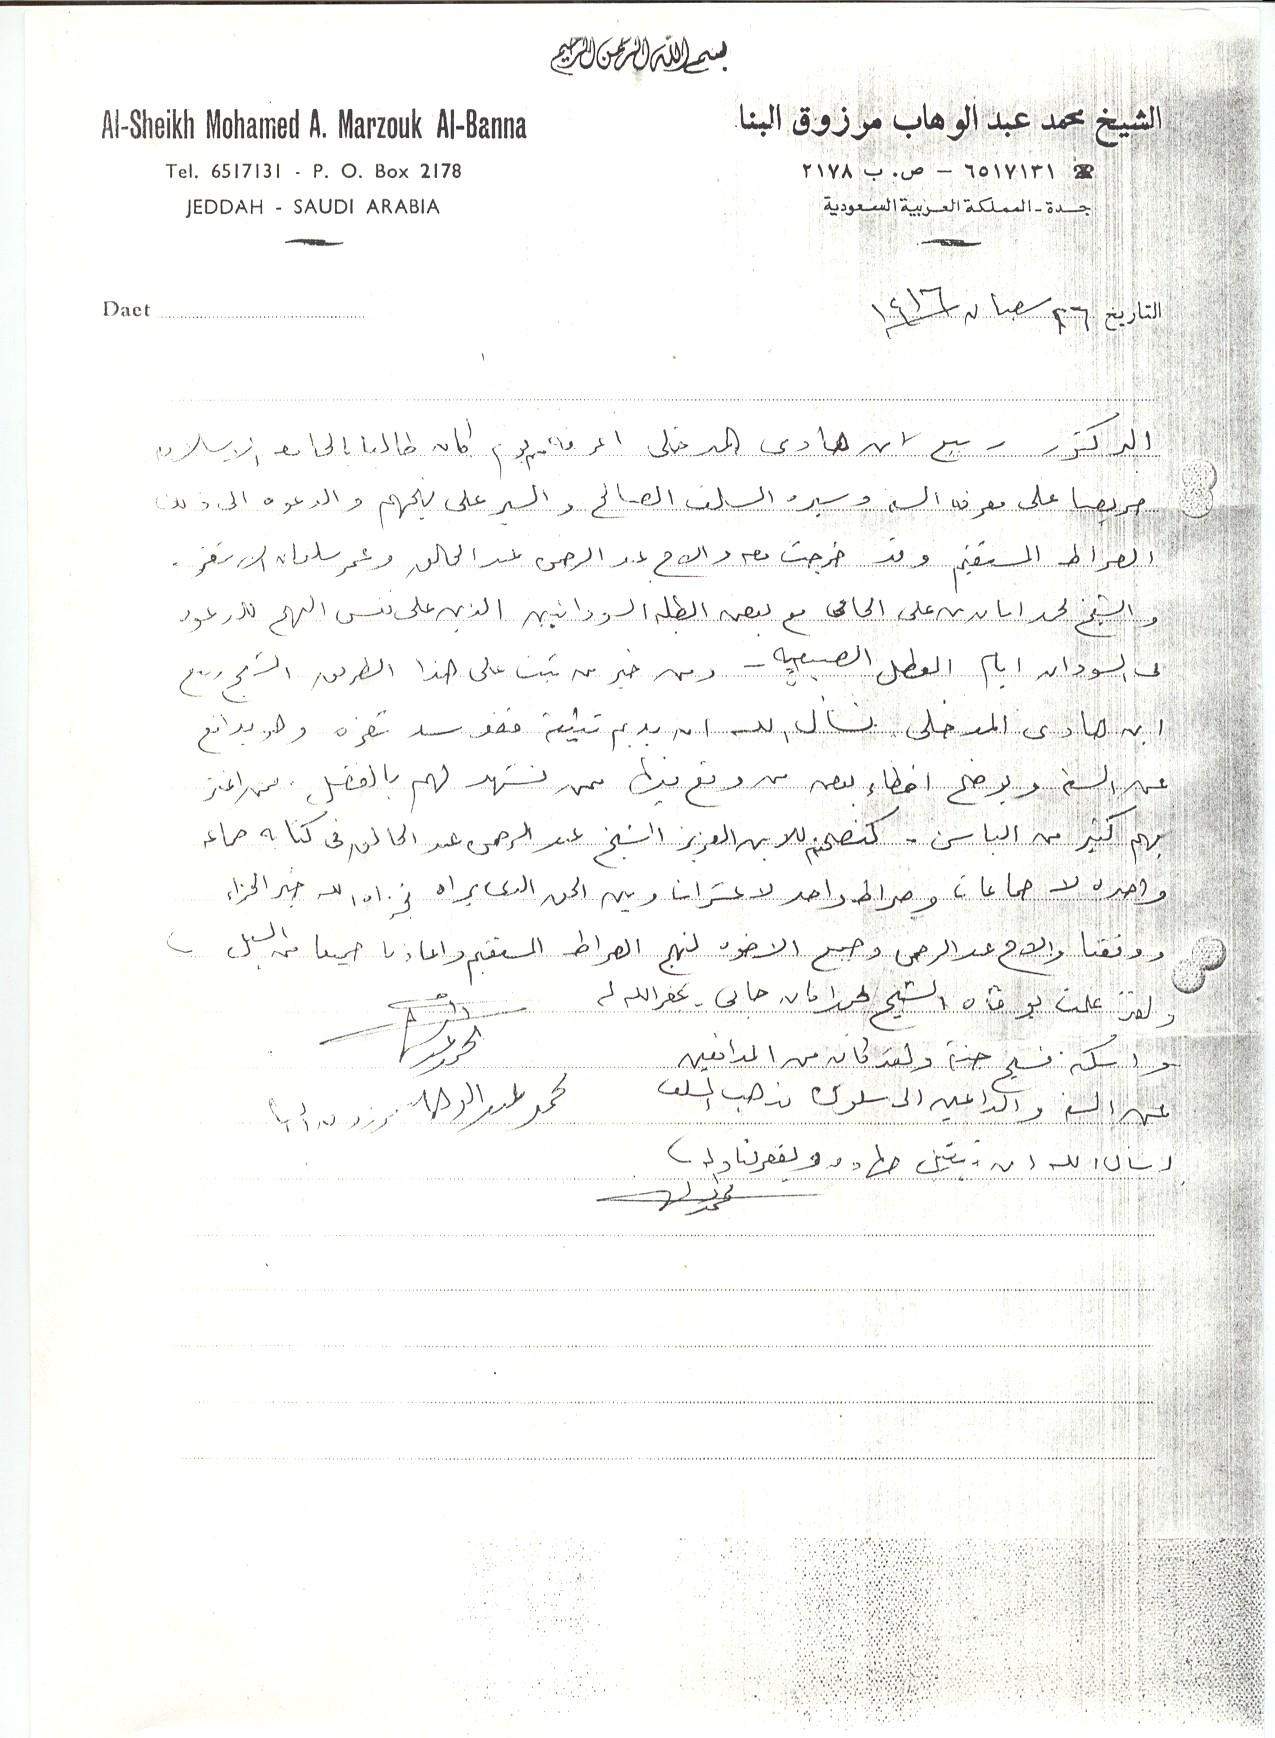 بسم الله الرحمن الرحيم
Al-Sheikh Mohamed A. Marzouk Al-Banna
Tel. 6517131 - P. O. Box 2178
JEDDAH - SAUDI ARABIA
الشيخ محمد عبد الوهاب مرزوق البنا
☎ ٦٥١٧١٣١ - ص. ب ٢١٧٨
جدة - المملكة العربية السعودية
Daet
التاريخ ٢٦ شعبان ١٤١٦
الدكتور ربيع ابن هادى المدخلى اعرفه يوم كان طالبا بالجامعه الاسلاميه
حريصا على معرفه السنه وسيره السلف الصالح والسير على نهجهم والدعوه الى ذلك
الصراط المستقيم وقد خرجت معه والاخ عبد الرحمن عبد الخالق وعمر سليمان الاشقر
والشيخ محمد امان بن على الجامى مع بعض الطلبه السودانيين الذين على نفس النهج للدعوه
فى السودان ايام العطل الصيفيه - ومن خير من ثبت على هذا الطريق الشيخ ربيع
ابن هادى المدخلى نسأل الله ان يديم تثبيته فهو سد ثغره وهو يدافع
عن السنه ويوضح اخطاء بعض من وقع فيها ممن نشهد لهم بالفضل ممن اغتر
بهم كثير من الناس - كنصحه للابن العزيز الشيخ عبد الرحمن عبد الخالق فى كتابه جماعه
واحده لا جماعات وصراط واحد لا عشرات وبين الحق الذى يراه فجزاه الله خير الجزاء
ووفقنا والاخ عبد الرحمن وجميع الاخوه لنهج الصراط المستقيم واعاذنا جميعا من السبل
ولقد علمت بوفاه الشيخ محمد امان جامى - غفر الله له
واسكنه فسيح جنته ولقد كان من المدافعين
عن السنه والداعين الى سلوك مذهب السلف
محمد عبد الوهاب مرزوق البنا
اسأل الله ان ويغفر لنا وله